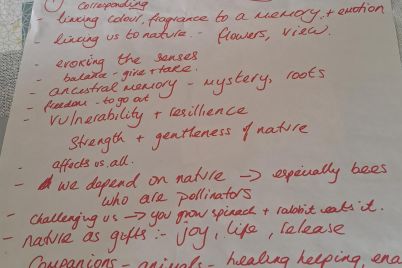 ① corresponding
- linking colour, fragrance to a memory, + emotion
- linking us to nature - flowers, view.
- evoking the senses
- balance - give + take.
- ancestral memory - mystery, roots
- freedom - to go out
- vulnerability + resillience
strength + gentleness of nature
- affects us all.
- we depend on nature → especially bees
who are pollinators
- challenging us → you grow spinach + rabbit eats it.
- nature as gifts :- joy, life, release
Companions - animals - healing helping, ena